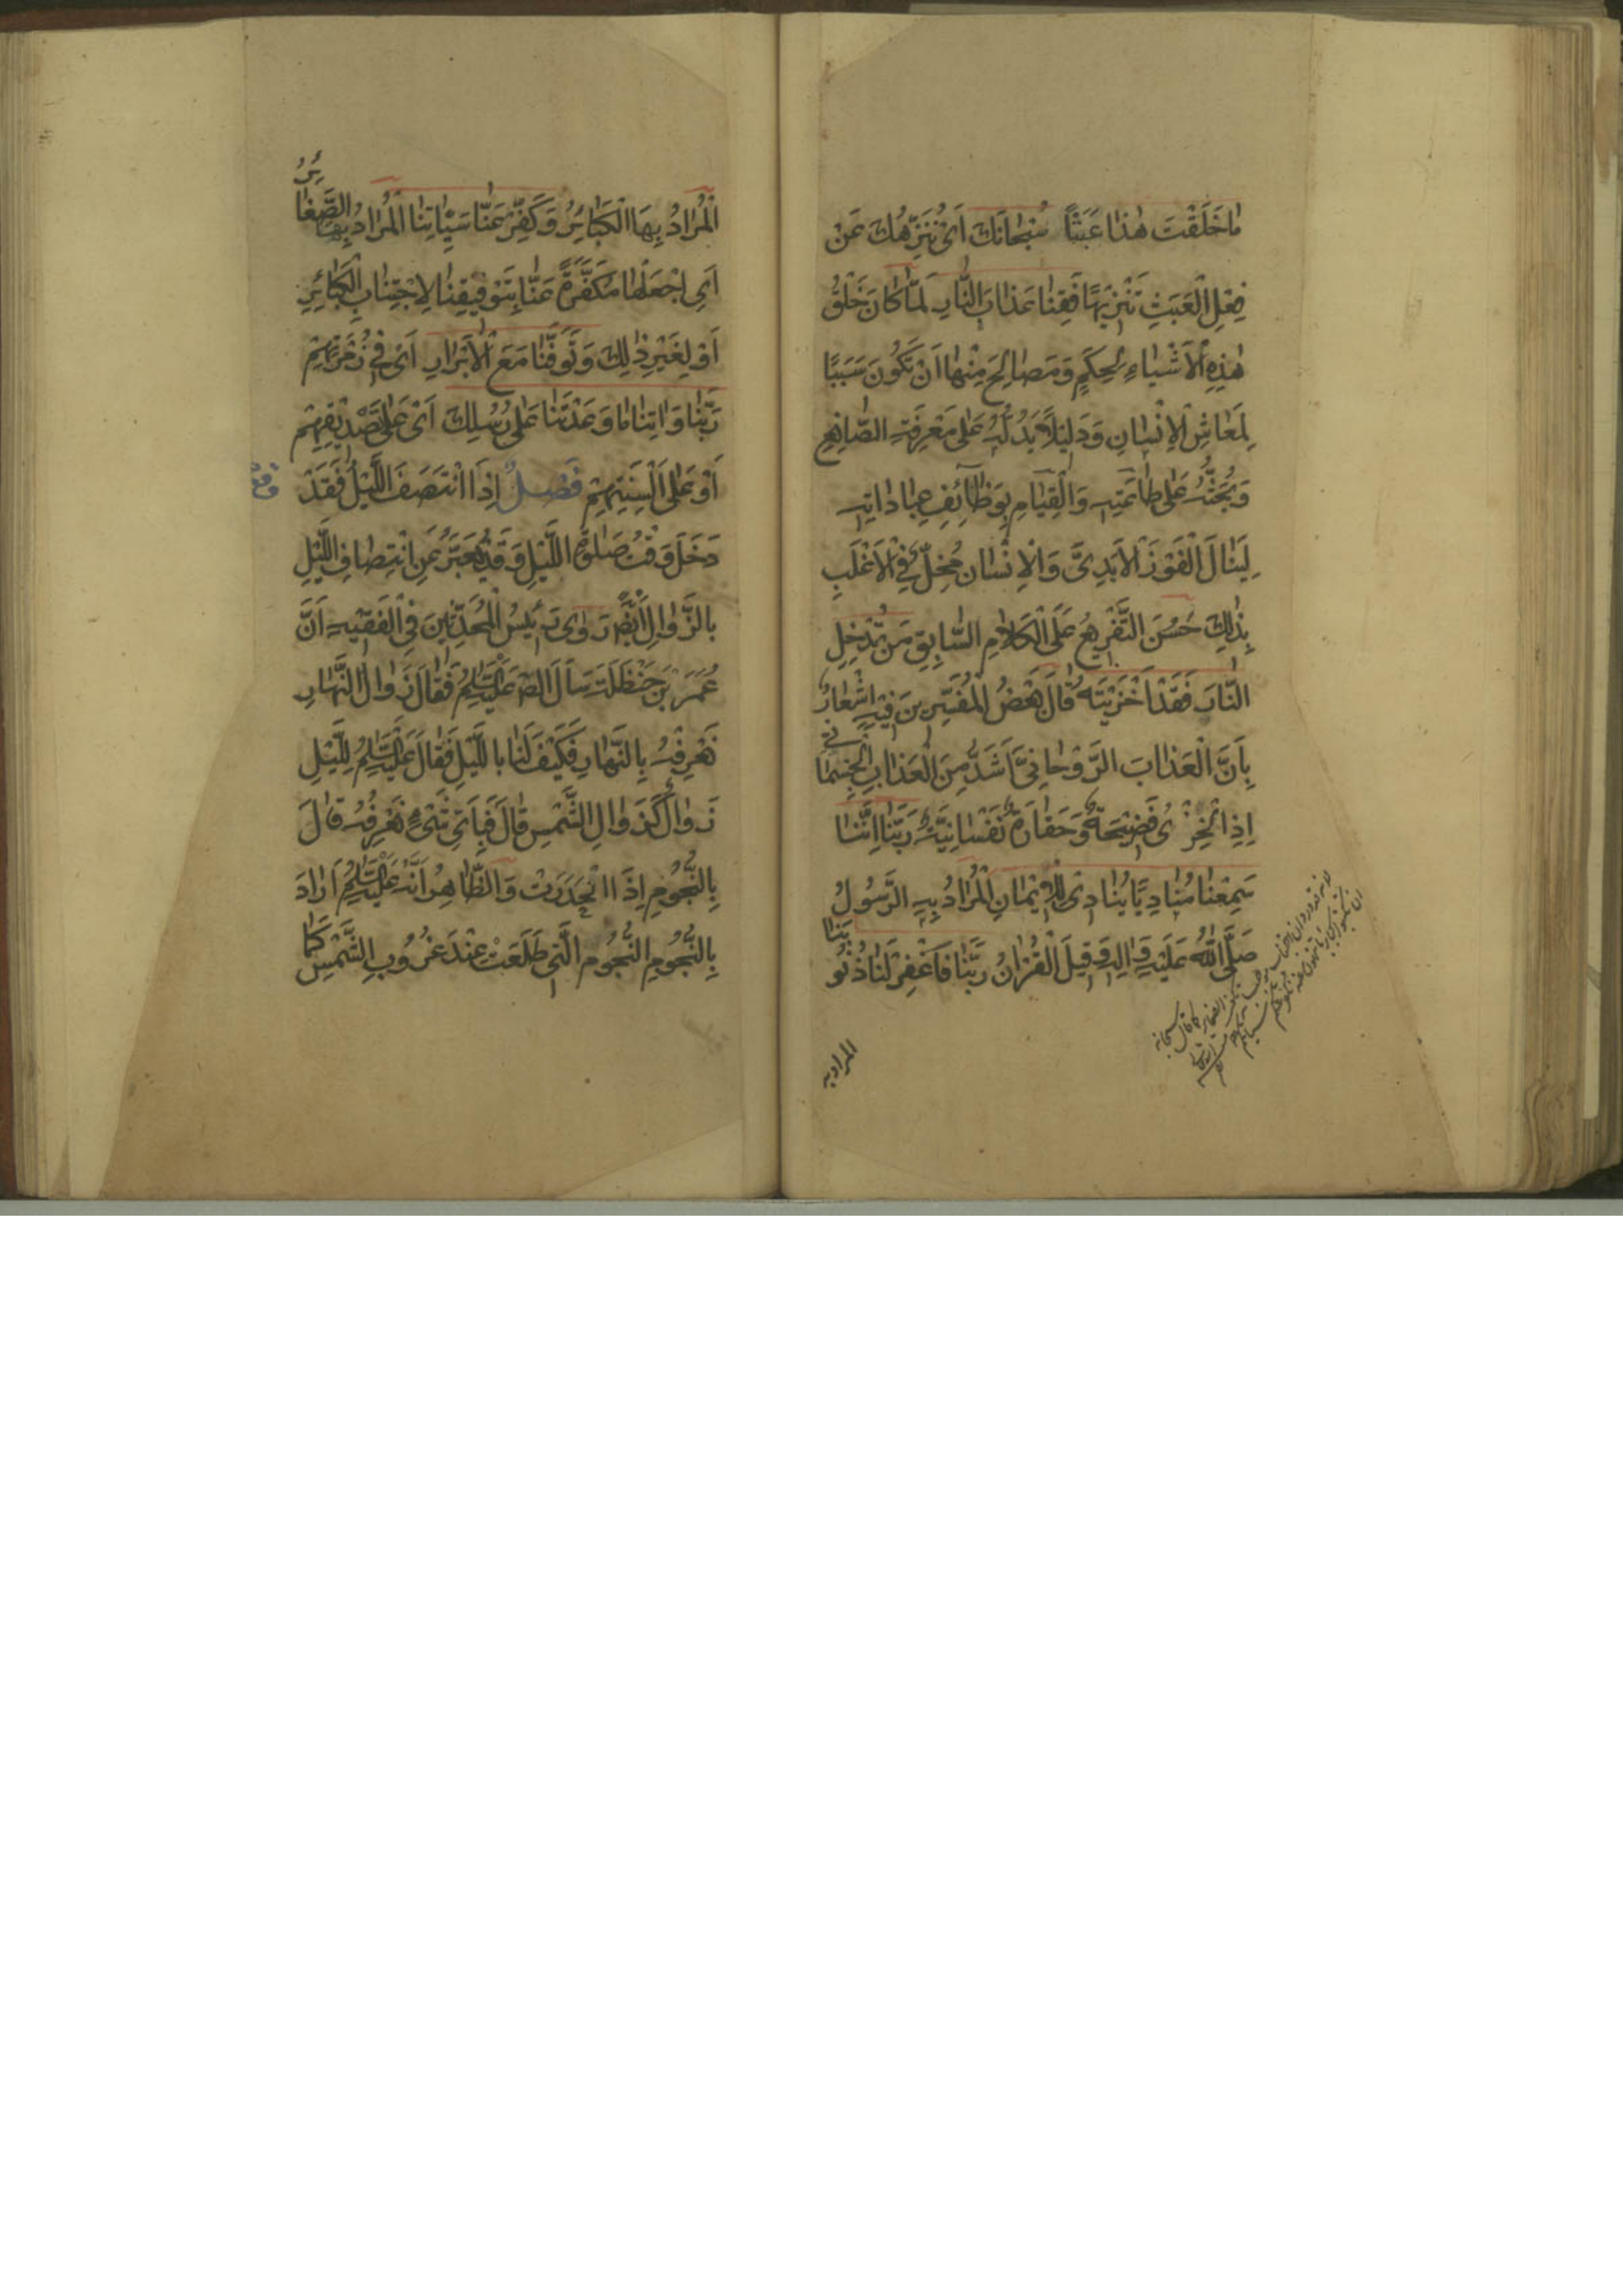 مٰا خَلَقْتَ هٰذٰا عَبَثًا سُبْحٰانَكَ اَیْ نُنَزِّهُكَ عَنْ
فِعْلِ الْعَبَثِ تَنْزِیْهًا فَقِنٰا عَذٰابَ النّٰارِ لَمّٰا كٰانَ خَلْقُ
هٰذِهِ الْاَشْیٰاءِ لِحِكَمٍ وَ مَصٰالِحَ مِنْهٰا اَنْ تَكُونَ سَبَبًا
لِمَعٰاشِ الْاِنْسٰانِ وَ دَلِیْلًا یَدُلُّهُ عَلٰی مَعْرِفَةِ الصّٰانِعِ
وَ یَحُثُّهُ عَلٰی طٰاعَتِهِ وَ الْقِیٰامِ بِوَظٰائِفِ عِبٰادٰاتِهِ
لِیَنٰالَ الْفَوْزَ الْاَبَدِیَّ وَ الْاِنْسٰان مُخِلٌّ فِی الْاَغْلَبِ
بِذٰلِكَ حَسُنَ التَّفْرِیْعُ عَلَی الْكَلٰامِ السّٰابِقِ مَنْ تُدْخِلِ
النّٰارَ فَقَدْ اَخْزَیْتَهُ قٰالَ بَعْضُ الْمُفَسِّرِیْنَ فِیْهِ اِشْعٰارٌ
بِاَنَّ الْعَذٰابَ الرَّوْحٰانِیَّ اَشَدُّ مِنَ الْعَذٰابِ الْجِسْمٰانِی
اِذِ الْخِزْیُ فَضِیْحَةٌ وَ حَقٰارَةٌ نَفْسٰانِیَّةٌ رَبَّنٰا اِنَّنٰا
سَمِعْنٰا مُنٰادِیًا یُنٰادِیْ لِلْاِیْمٰانِ الْمُرٰادُ بِهِ الرَّسُولُ
صَلَّی اللّٰهُ عَلَیْهِ وَ اٰلِهِ وَ قِیلَ الْقُرْاٰنُ رَبَّنٰا فَاغْفِرْ لَنٰا ذُنُوبَنٰا
المراد بها
الْمُرٰادُ بِهَا الْكَبٰائِرُ وَ كَفِّرْ عَنّٰا سَیِّاٰتِنٰا الْمُرٰادُ بِهَا الصَّغٰائِرُ
اَیِ اجْعَلْهٰا مُكَفَّرَةً عَنّٰا بِتَوْفِیْقِنٰا لِاجْتِنٰابِ الْكَبٰائِرِ
اَوْ لِغَیْرِ ذٰلِكَ وَ تَوَفَّنٰا مَعَ الْاَبْرٰارِ اَیْ فِیْ زُمْرَتِهِمْ
رَبَّنٰا وَ اٰتِنٰا مٰا وَعَدْتَنٰا عَلٰی رُسُلِكَ اَیْ عَلٰی تَصْدِیْقِهِمْ
اَوْ عَلٰی اَلْسِنَتِهِمْ فَصْلٌ اِذَا انْتَصَفَ اللَّیْلُ فَقَدْ
دَخَلَ وَقْتُ صَلٰوةِ اللَّیْلِ وَ قَدْ یُعَبَّرُ عَنِ انْتِصٰافِ اللَّیْلِ
بِالزَّوٰالِ اَیْضًا رَوٰی رَئِیْسُ الْمُحَدِّثِیْنَ فِی الْفَقِیْهِ اَنَّ
عُمَرَ بْنَ حَنْظَلَةَ سَاَلَ الصّ عَلَیْهِ السَّلٰمُ فَقٰالَ زَوٰالُ النَّهٰارِ
نَعْرِفُهُ بِالنَّهٰارِ فَكَیْفَ لَنٰا بِاللَّیْلِ فَقٰالَ عَلَیْهِ السَّلٰمُ لِلَّیْلِ
زَوٰالٌ كَزَوٰالِ الشَّمْسِ قٰالَ فَبِاَیِّ شَیْءٍ نَعْرِفُهُ قٰالَ
بِالنُّجُوْمِ اِذَا انْحَدَرَتْ وَ الظّٰاهِرُ اَنَّهُ عَلَیْهِ السَّلٰمُ اَرٰادَ
بِالنُّجُوْمِ النُّجُوْم الَّتِی طَلَعَتْ عِنْدَ غُرُوْبِ الشَّمْسِ كَمٰا